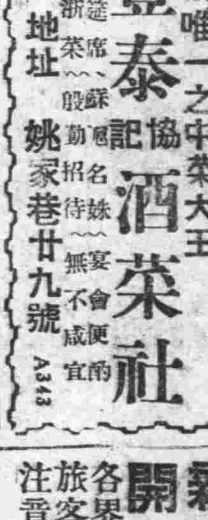 唯一之中菜大王
豐泰
協記
酒菜社
筵席、蘇㕑名姝～宴會便酌
浙菜～殷勤招待～無不咸宜
地址 姚家巷廿九號 A343
開
各界
旅客
注音